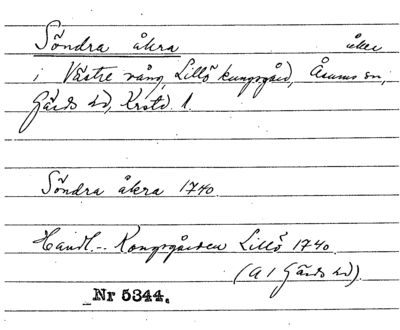 Söndra åkra åker
i Västre vång, Lillö kungsgård, Åsums sn,
Gärds hd, Krstd. l.
Söndra åkra 1740.
Handl. - Kongsgården Lillö 1740.
(A 1 Gärds hd).
Nr 5344.